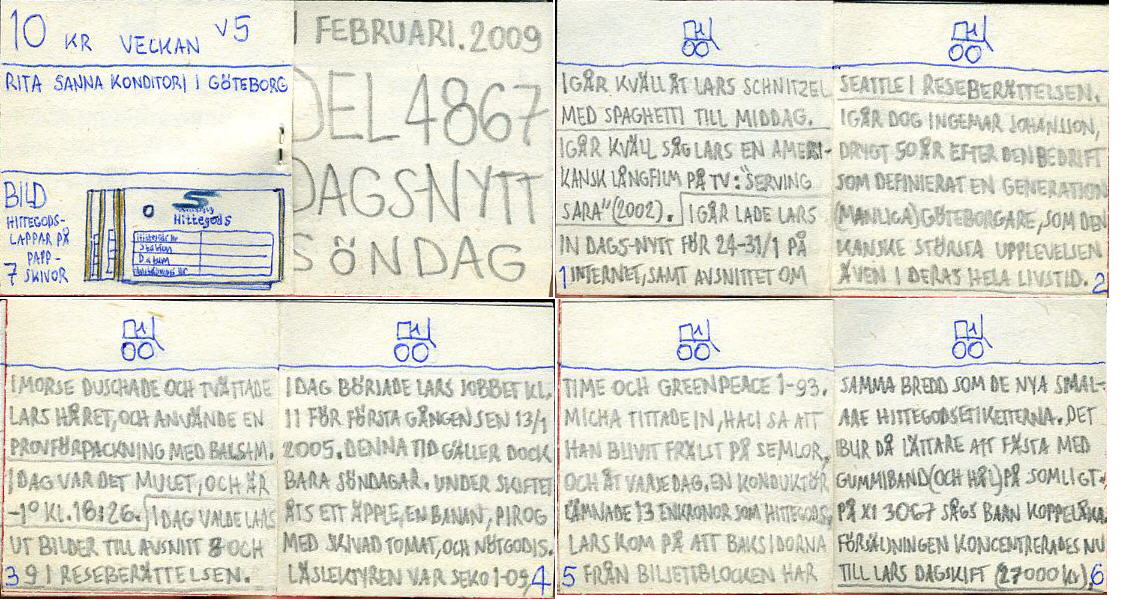 10 KR VECKAN V5
RITA SANNA KONDITORI I GÖTEBORG
BILD
HITTEGODS-
LAPPAR PÅ
PAPP-
SKIVOR
7
S
Hittegods
Datum
1 FEBRUARI.2009
DEL 4867
DAGS-NYTT
SÖNDAG
IGÅR KVÄLL ÅT LARS SCHNITZEL
MED SPAGHETTI TILL MIDDAG.
IGÅR KVÄLL SÅG LARS EN AMERI-
KANSK LÅNGFILM PÅ TV: "SERVING
SARA" (2002). IGÅR LADE LARS
IN DAGS-NYTT FÖR 24-31/1 PÅ
INTERNET, SAMT AVSNITTET OM
1
SEATTLE I RESEBERÄTTELSEN.
IGÅR DOG INGEMAR JOHANSSON,
DRYGT 50 ÅR EFTER DEN BEDRIFT
SOM DEFINIERAT EN GENERATION
(MANLIGA) GÖTEBORGARE, SOM DEN
KANSKE STÖRSTA UPPLEVELSEN
ÄVEN I DERAS HELA LIVSTID.
2
I MORSE DUSCHADE OCH TVÄTTADE
LARS HÅRET, OCH ANVÄNDE EN
PROVFÖRPACKNING MED BALSAM.
IDAG VAR DET MULET, OCH ÄR
-1° KL.18:26. IDAG VALDE LARS
UT BILDER TILL AVSNITT 8 OCH
9 I RESEBERÄTTELSEN.
3
IDAG BÖRJADE LARS JOBBET KL.
11 FÖR FÖRSTA GÅNGEN SEN 13/1
2005. DENNA TID GÄLLER DOCK
BARA SÖNDAGAR. UNDER SKIFTET
ÅTS ETT ÄPPLE, EN BANAN, PIROG
MED SKIVAD TOMAT, OCH NÖTGODIS.
LÄSLEKTYREN VAR SEKO 1-09,
4
TIME OCH GREENPEACE 1-93.
MICHA TITTADE IN, HACI SA ATT
HAN BLIVIT FRÄLST PÅ SEMLOR,
OCH ÅT VARJE DAG. EN KONDUKTÖR
LÄMNADE 13 ENKRONOR SOM HITTEGODS.
LARS KOM PÅ ATT BAKSIDORNA
FRÅN BILJETTBLOCKEN HAR
5
SAMMA BREDD SOM DE NYA SMAL-
ARE HITTEGODSETIKETTERNA. DET
BLIR DÅ LÄTTARE ATT FÄSTA MED
GUMMIBAND (OCH HÅL) PÅ SOMLIGT.
PÅ X1 3067 SÅGS BARN KOPPELÅKA.
FÖRSÄLJNINGEN KONCENTRERADES NU
TILL LARS DAGSKIFT (27000 kr).
6